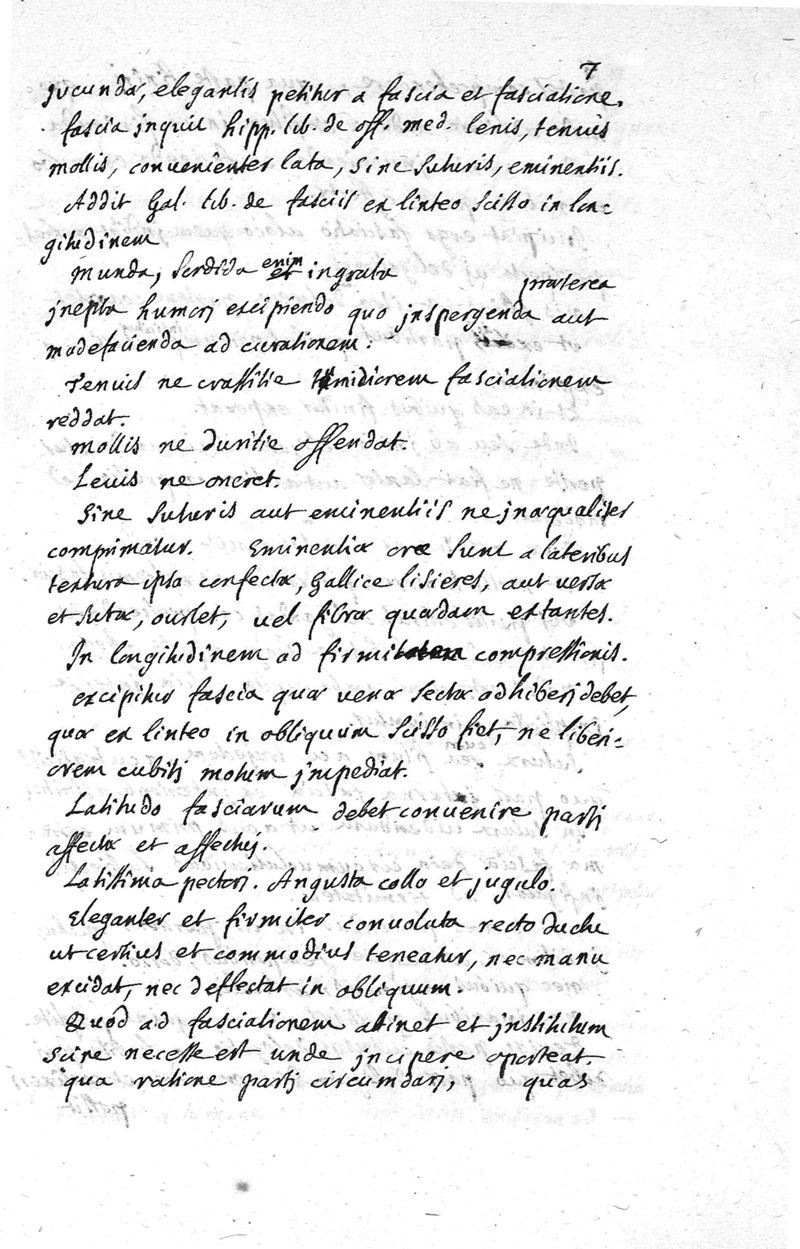 7
jucundæ, elegantis petitur a fascia et fasciatione.
fascia jnquit hipp. lib. de off. med. lenis, tenuis
mollis, convenienter lata, sine suturis, eminentiis.
Addit Gal. lib. de fasciis ex linteo scisso in lon=
gitudinem
munda, sordida enim et ingrata
præterea
jnepta humorj excipiendo quo jnspergenda aut
madefacienda ad curationem:
Tenuis ne crassitie tumidiorem fasciationem
reddat.
mollis ne duritie offendat.
Leuis ne oneret.
Sine suturis aut eminentiis ne jnæqualiter
comprimatur. Eminentiæ oræ sunt a lateribus
textura ipsa confectæ, Gallice lisieres, aut versæ
et sutæ, ourlet, uel fibræ quædam extantes.
In longitudinem ad firmitatem compressionis.
excipitur fascia quæ venæ sectæ adhiberj debet,
quæ ex linteo in obliquum scisso fiet, ne liberi=
orem cubitj motum jmpediat.
Latitudo fasciarum debet conuenire partj
affectæ et affectuj.
Latissima pectorj. Angusta collo et jugulo.
Eleganter et firmiter conuoluta recto ductu
ut certius et commodius teneatur, nec manu
excidat, nec deflectat in obliquum.
Quod ad fasciationem attinet et jnstitutum
scire necesse est unde jncipere oporteat.
qua ratione partj circumdarj, quas